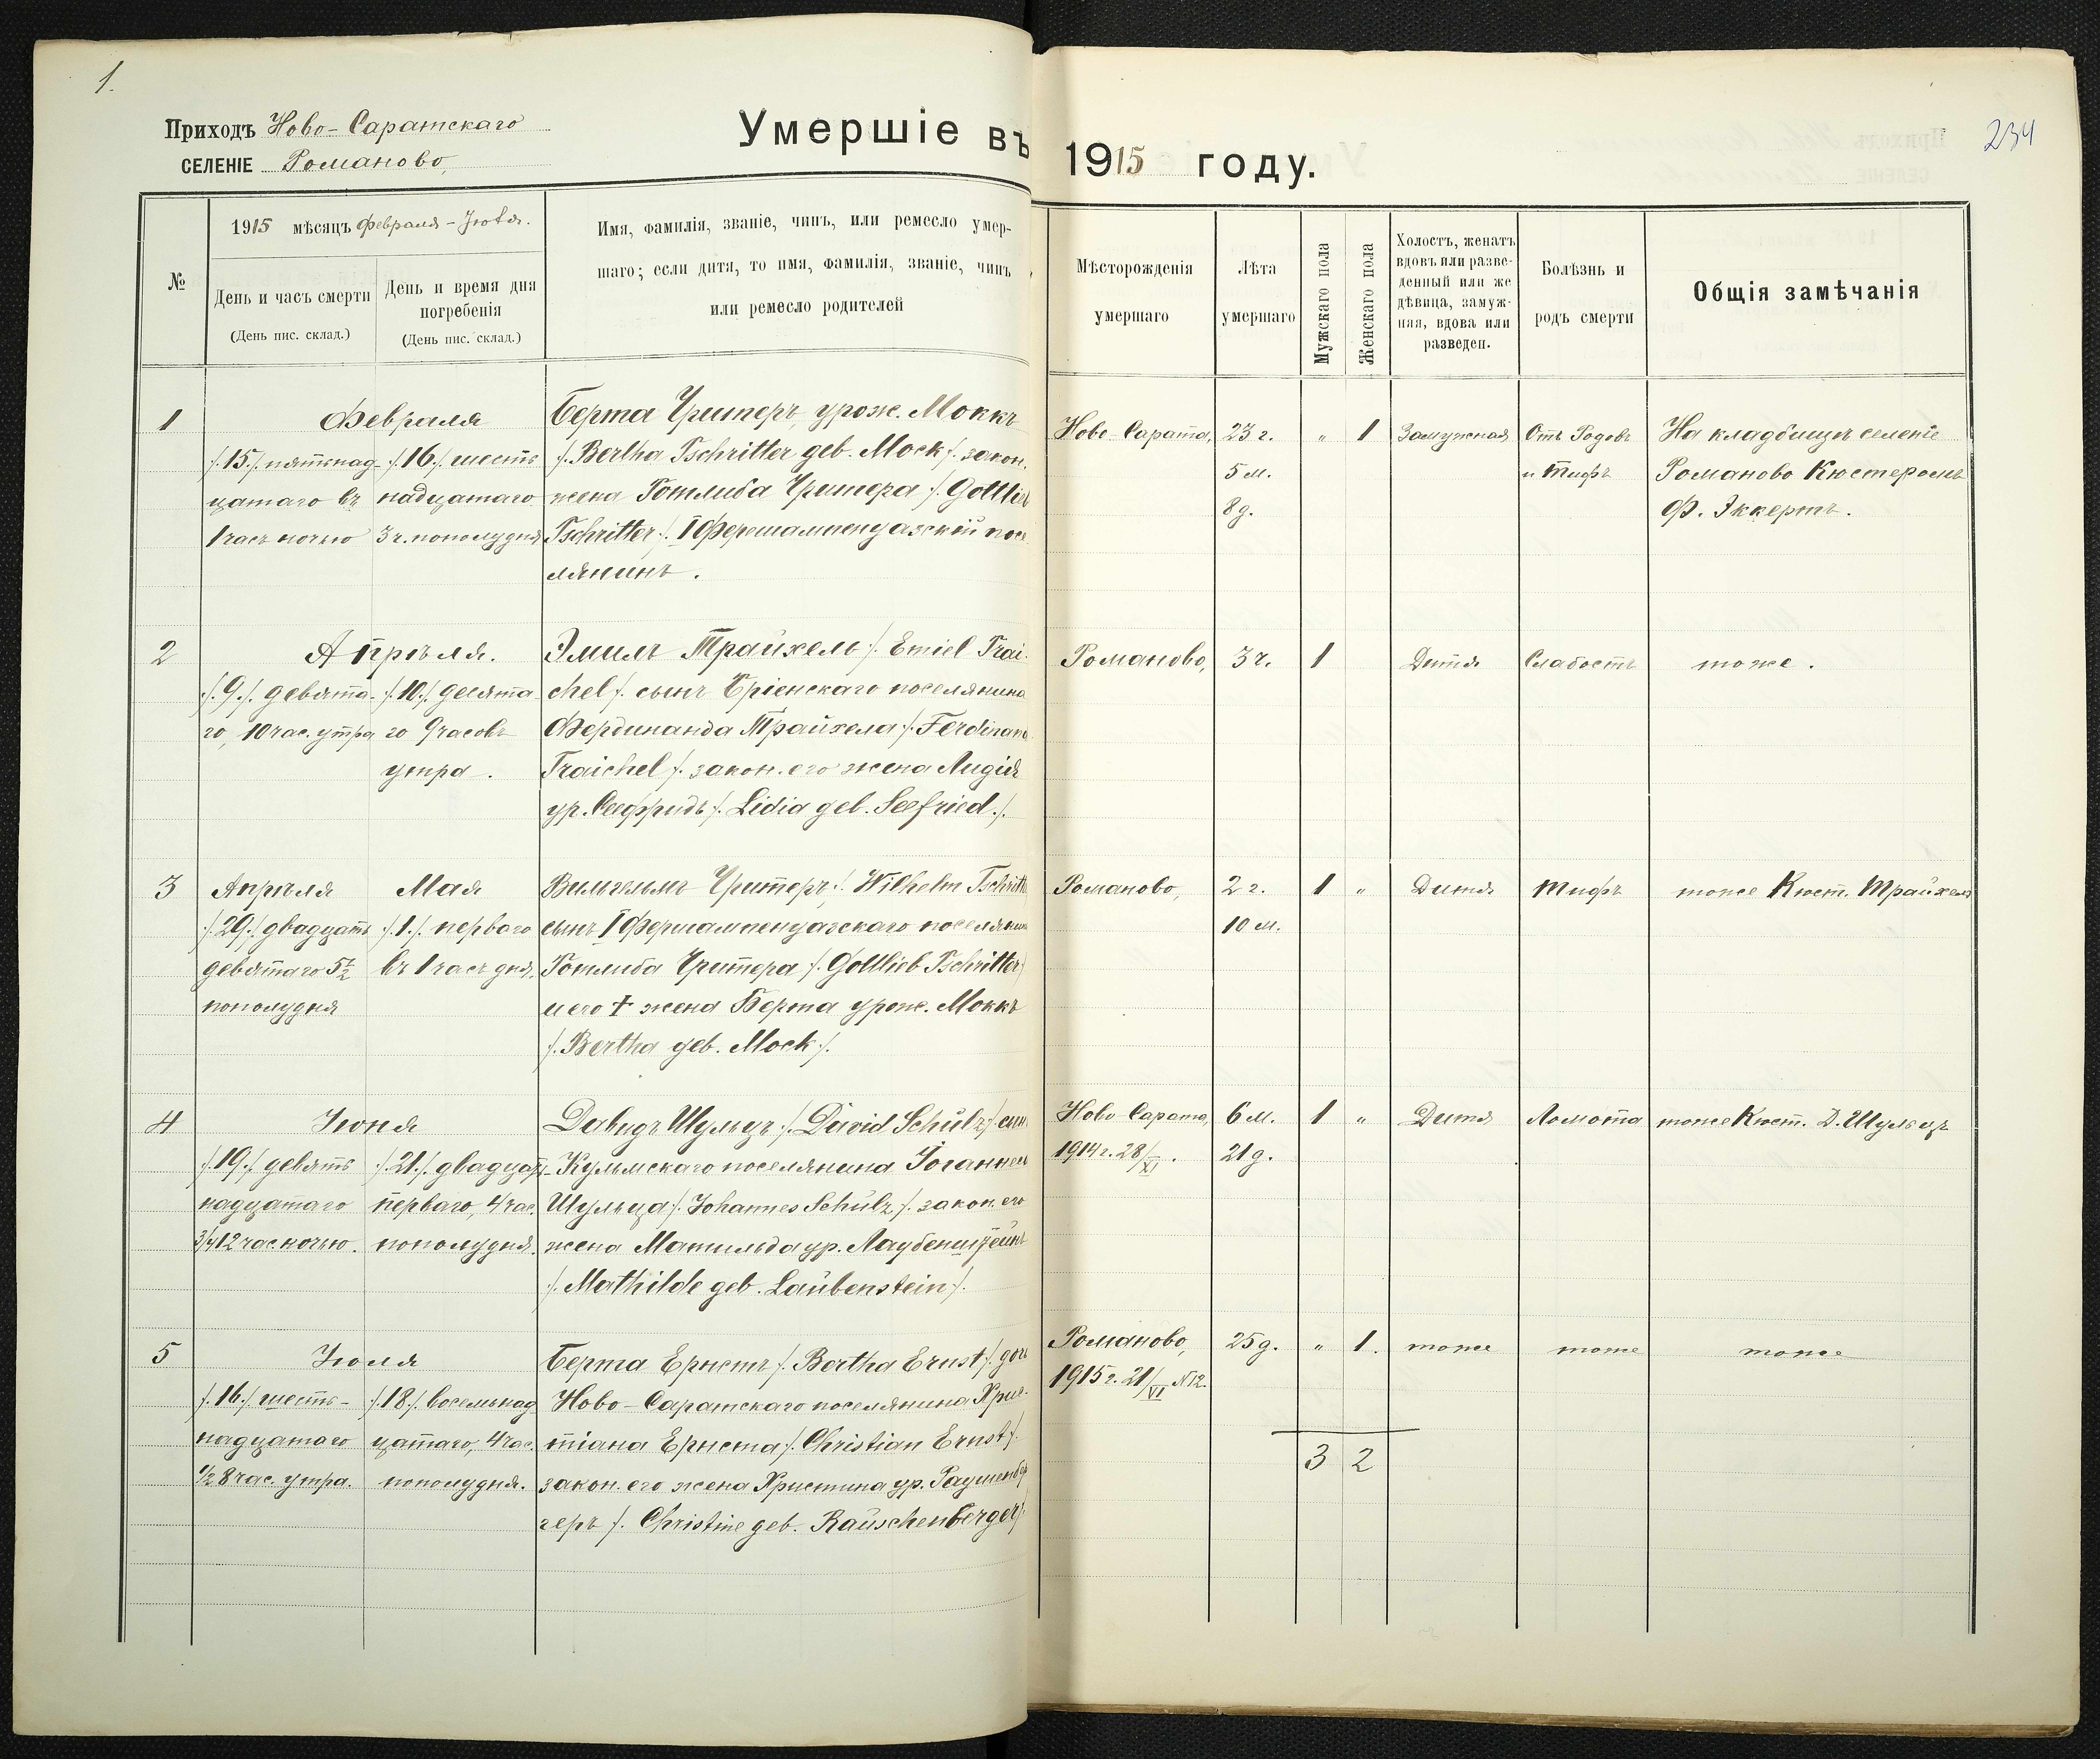 1.
Приходъ Ново-Саратскаго
СЕЛЕНІЕ Романово,
Умершіе въ 1915 году.
234
№
1915 мѣсяцъ Февраля - Іюля.
День и часъ смерти
(День пис. склад.)
День и время дня
погребенія
(День пис. склад.)
Имя, фамилія, званіе, чинъ, или ремесло умер-
шаго; если дитя, то имя, фамилія, званіе, чинъ
или ремесло родителей
Мѣсторожденія
умершаго
Лѣта
умершаго
Мужскаго пола
Женскаго пола
Холостъ, женатъ
вдовъ или разве-
денный или же
дѣвица, замуж-
няя, вдова или
разведен.
Болѣзнь и
родъ смерти
Общія замѣчанія
1
Февраля
/.15./ пятьнад-
цатаго въ
1 часъ ночью
/.16./ шесть
надцатаго
3 ч. пополудня
Берта Чритеръ, урож. Моккъ
/. Bertha Tschritter geb. Mock /. закон.
жена Готлиба Чритера /. Gottlieb
Tschritter /. I Фершампенуазскій посе
лянинъ.
Ново-Сарата,
23 г.
5 м.
8 д.
„
1
Замужная
Отъ Родовъ
и Тифъ
На кладбищѣ селеніе
Романово Кюстеромъ
Ф. Эккертъ.
2
Апрѣля.
/.9./ девята-
го, 10 час. утра
/.10./ десята
го 9 часовъ
утра.
Эмилъ Трайхель /. Emiel Trai-
chel /. сынъ Бріенскаго поселянина
Фердинанда Трайхела /. Ferdinand
Traichel /. закон. его жена Лидія
ур. Сеефридъ /. Lidia geb. Seefried ./.
Романово,
3 ч.
1
Дитя
Слабость
тоже.
3
Апрѣля
/.29./ двадцать
девятаго 5 1/2
пополудня
Мая
/.1./ перваго
въ 1 часъ дня.
Вильгельмъ Чритеръ, /. Wilhelm Tschritt
сынъ I Фершампенуазскаго поселянин
Готлиба Чритера /. Gottlieb Tschritter /
и его † жена Берта урож. Моккъ
/. Bertha geb. Mock /.
Романово,
2 г.
10 м.
1
„
Дитя
Тифъ
тоже Кюст. Трайхелъ
4
Іюня
/.19./ девять
надцатаго
3/4 12 час. ночью.
/.21./ двадцать
перваго, 4 час.
пополудня.
Давидъ Шульцъ /. David Schülz /. сын
Кульмскаго поселянина Іоганнесъ
Шульца /. Johannes Schülz /. закон. его
жена Матильда ур. Лаубенштейнъ
/. Mathilde geb. Laübenstein /.
Ново-Сарата,
1914 г. 28/XI.
6 м.
21 д.
1
„
Дитя
Ломота
тоже Кюст. Д. Шульцъ
5
Іюля
/.16./ шесть-
надцатаго
1/2 8 час. утра.
/.18./ восемьнад
цатаго, 4 час.
пополудня.
Берта Ернстъ /. Bertha Ernst /. доч
Ново-Саратскаго поселянина Хрис-
тіана Ернста /. Christian Ernst /.
закон. его жена Христина ур. Раушенбер
геръ /. Christine geb. Raüschenberger /.
Романово,
1915 г. 21/VI №12.
25 д.
„
1.
тоже
тоже
тоже
3 2